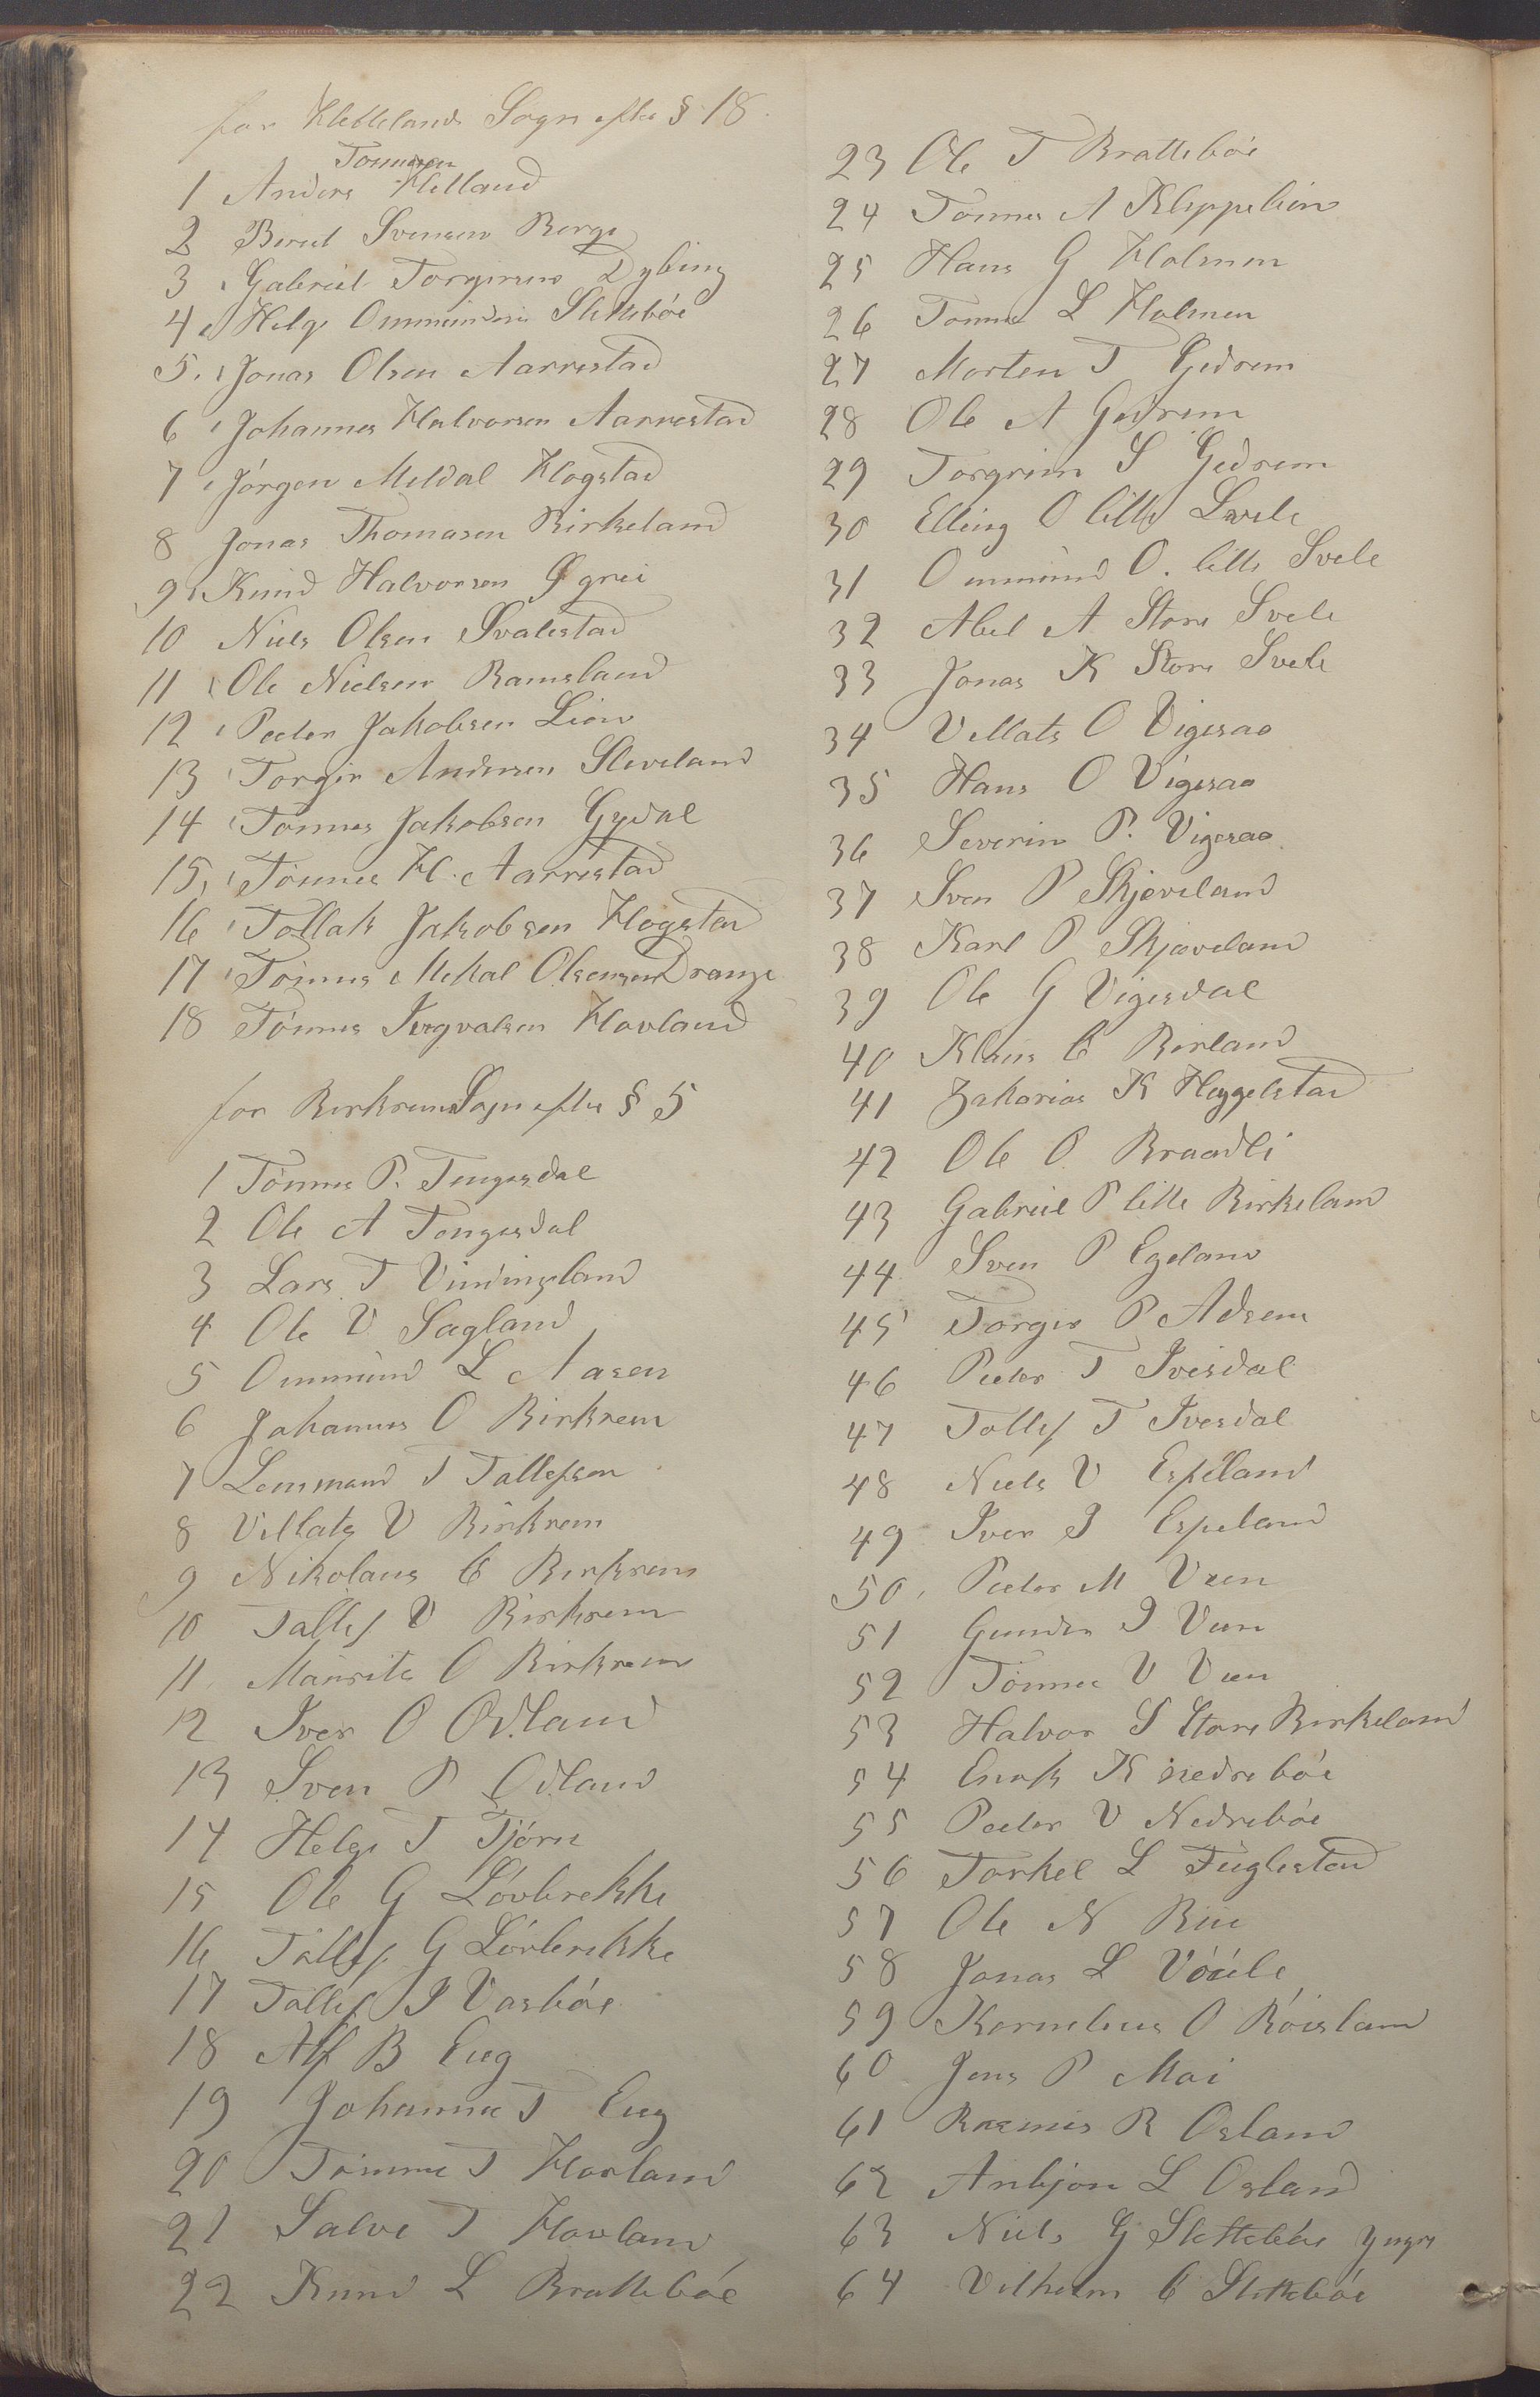 for Hellelands Sogn efter § 18.
Tonnesen
1 Anders Helland
2 Berul Svensen Berge
3 Gabriel Torgersens Dybing
4 Helge Ommundsen Slettebóe
5. Jonas Olsen Aarrestad
6 Johannes Halvorsen Aarrestad
7 Jórgen Meldal Hogstad
8 Jonas Thomasen Birkeland
9 Knud Halvorsen Ógrei
10 Niels Olsen Svalestad
11 Ole Nielsen Ramsland
12 Peder Jakobsen Lien
13 Torger Andersen Sleveland
14 Tónnes Jakobsen Gydal
15, Tónnes H. Aarrestad
16 Tollak Jakobsen Hogstad
17 Tónnes Mekal Olsensen Drange
18 Tónnes Sigvalsen Hovland
for Birkrem Sogn efter § 5
1 Tónnes P. Tengesdal
2 Ole A Tengesdal
3 Lars T Vinningland
4 Ole V Sagland
5 Ommund L Aasen
6 Johannes O Birkrem
7 Lensmand T Tallefsen
8 Villats V Birkrem
9 Nikolaus C Birkrem
10 Tallef V Birkrem
11 Maurits O Birkrem
12 Iver O Odland
13 Sven P Odland
14 Helge T Tjórn
15 Ole G Lóvbrekke
16 Tollef G Lóvbrekke
17 Tollef I Vasbóe
18 Alf B Eeg
19 Johannes T Eeg
20 Tónnes T Hovland
21 Salve T Hovland
22 Knud L Brattebóe
23 Ole T Brattebóe
24 Tónnes A Kleppelien
25 Hans G Holmen
26 Tonnes L Holmen
27 Morten T Gjedrem
28 Ole A Gjedrem
29 Torgrim S Gjedrem
30 Elling O lille Svele
31 Ommund O. lille Svele
32 Abel A Store Svele
33 Jonas K Store Svele
34 Villats O Vigesaa
35 Hans O Vigesaa
36 Severin P. Vigesaa
37 Sven P Skjeveland
38 Karl P Skjæveland
39 Ole G Vigesdal
40 Klaus C Birland
41 Zakarias K Heggelstad
42 Ole O Braadli
43 Gabriel P lille Birkeland
44 Sven P Egeland
45 Torger P Adsem
46 Peder T Ivesdal
47 Tollef T Ivesdal
48 Niels V Espeland
49 Iver I Espeland
50, Peder M Veen
51 Gunder I Veen
52 Tónnes V Veen
53 Halvor S Store Birkeland
54 Enok K nedrebóe
55 Peder V Nedrebóe
56 Torkel L Fuglestad
57 Ole N Bue
58 Jonas L
59 Kornelius O Róisland
60 Jens P Moi
61 Rasmus R Osland
62 Anbjon L Osland
63 Niels G Slettebóe yngre
64 Vilhelm C Slettebóe